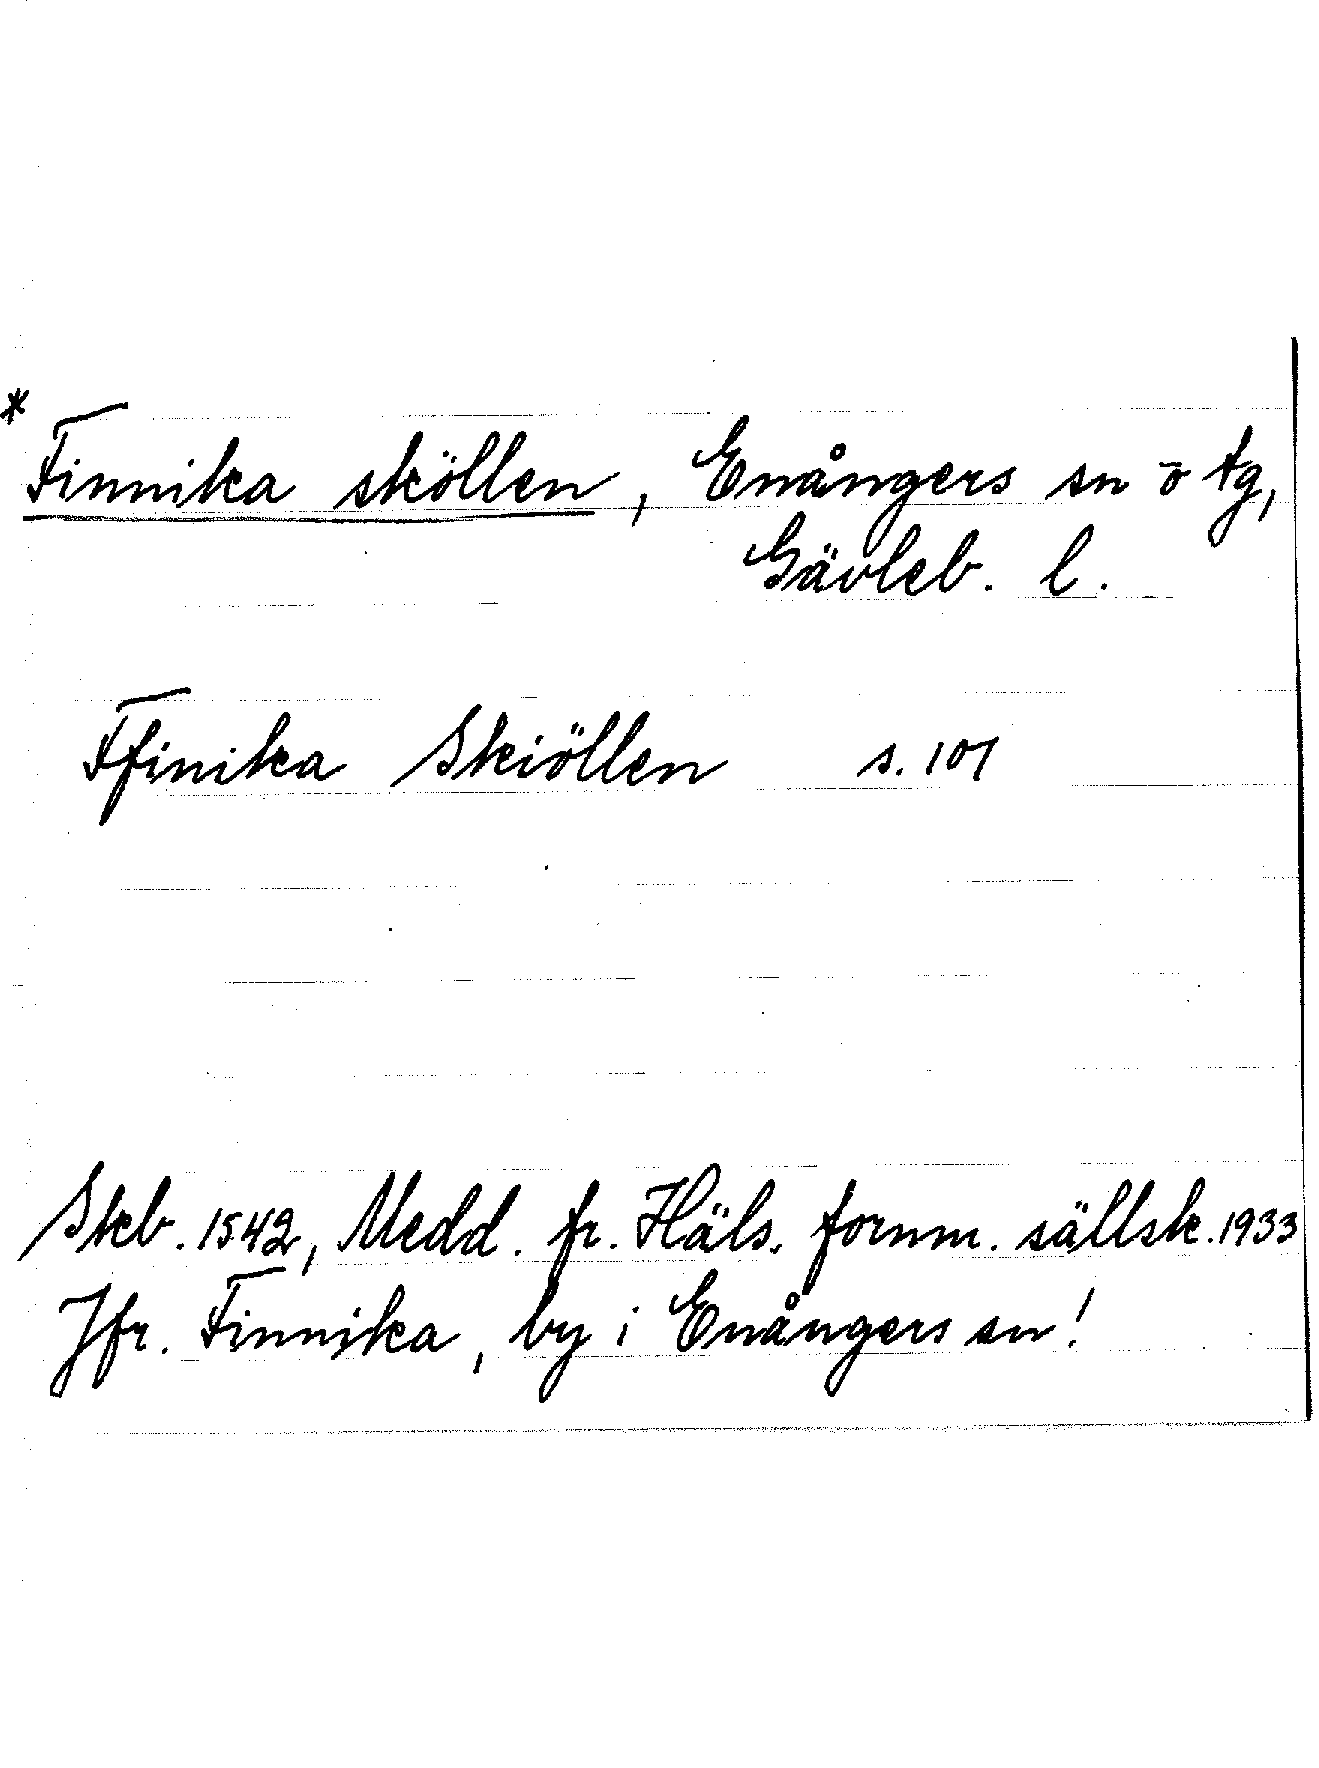 * Finnika sköllen, Enångers sn o tg,
Gävleb. l.
Ffinika Skiöllen s. 107
Skb. 1542, Medd. fr. Häls. fornm. sällsk. 1933
Jfr. Finnika, by i Enångers sn!